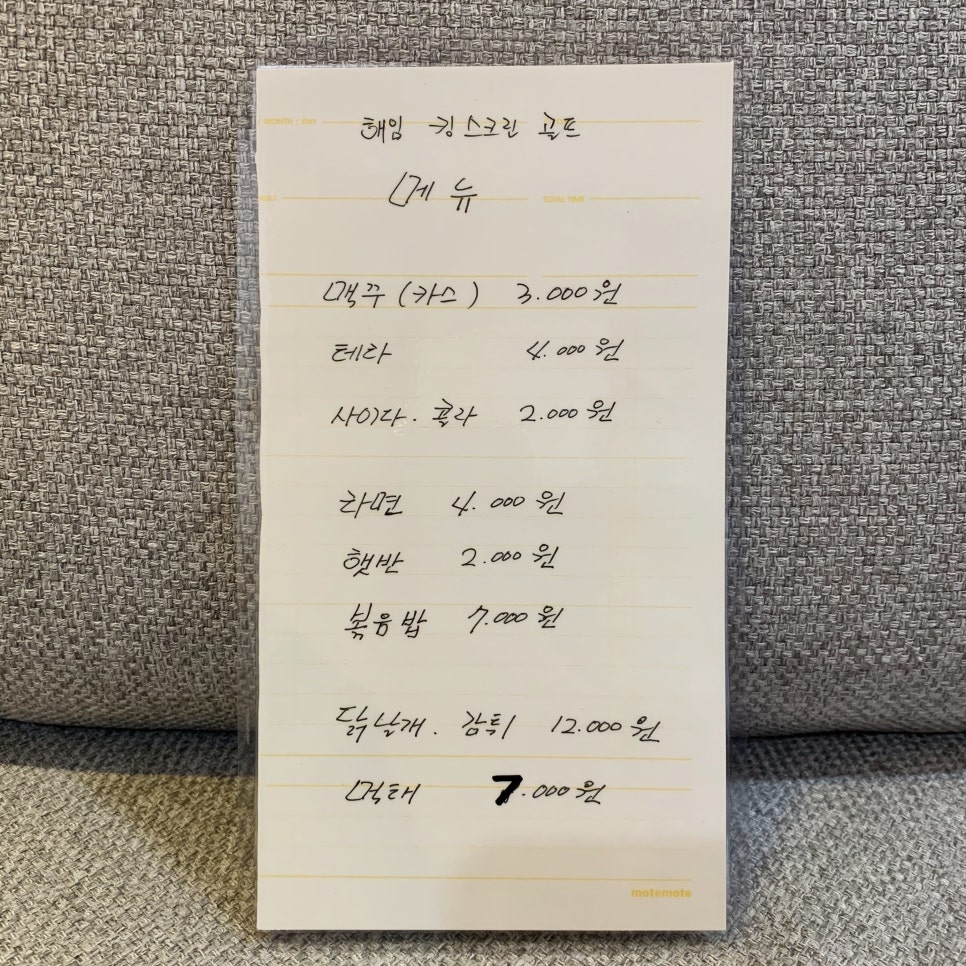 / MONTH / DAY
해임 킹스크린 골프
메뉴
TOTAL TIME
맥쭈 (카스) 3.000원
테라 4.000원
사이다. 콜라 2.000원
라면 4.000원
햇반 2.000원
볶음밥 7.000원
닭날개. 감튀 12.000원
먹태 7.000원
motemote